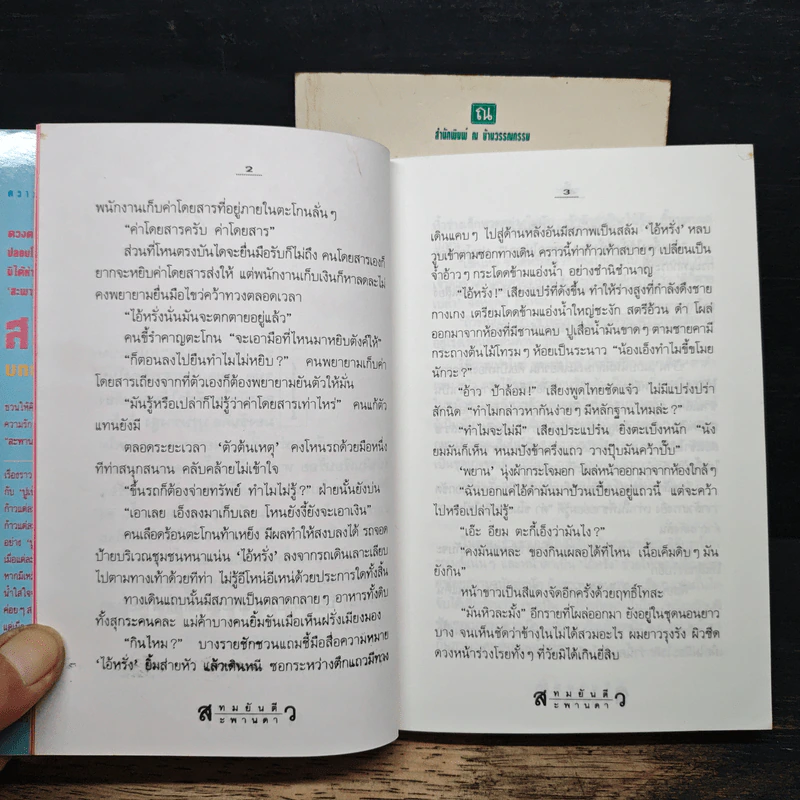 ณ
สำนักพิมพ์ ณ บ้านวรรณกรรม
2
พนักงานเก็บค่าโดยสารที่อยู่ภายในตะโกนลั่นๆ
“ค่าโดยสารครับ ค่าโดยสาร”
ส่วนที่โหนตรงบันไดจะยื่นมือรับก็ไม่ถึง คนโดยสารเองก็
ยากจะหยิบค่าโดยสารส่งให้ แต่พนักงานเก็บเงินก็หาลดละไม่
คงพยายามยื่นมือไขว่คว้าทวงตลอดเวลา
“ไอ้หรั่งนั่นมันจะตกตายอยู่แล้ว”
คนขี้รำคาญตะโกน “จะเอามือที่ไหนมาหยิบตังค์ให้”
“ก็ตอนลงไปยืนทำไมไม่หยิบ?” คนพยายามเก็บค่า
โดยสารเถียงจากที่ตัวเองก็ต้องพยายามยันตัวให้มั่น
“มันรู้หรือเปล่าก็ไม่รู้ว่าค่าโดยสารเท่าไหร่” คนแก้ตัว
แทนยังมี
ตลอดระยะเวลา ‘ตัวต้นเหตุ’ คงโหนรถด้วยมือหนึ่ง
ทีท่าสนุกสนาน คลับคล้ายไม่เข้าใจ
“ขึ้นรถก็ต้องจ่ายทรัพย์ ทำไมไม่รู้?” ฝ่ายนั้นยังบ่น
“เอาเลย เอ็งลงมาเก็บเลย โหนยังงี้ยังจะเอาเงิน”
คนเลือดร้อนตะโกนท้าเหยิง มีผลทำให้สงบลงได้ รถจอด
ป้ายบริเวณชุมชนหนาแน่น ‘ไอ้หรั่ง’ ลงจากรถเดินเลาะเลียบ
ไปตามทางเท้าด้วยทีท่า ไม่รู้อีโหน่อีเหน่ด้วยประการใดทั้งสิ้น
ทางเดินแถบนั้นมีสภาพเป็นตลาดกลายๆ อาหารทั้งดิบ
ทั้งสุกระคนคละ แม่ค้าบางคนยิ้มขันเมื่อเห็นฝรั่งเมียงมอง
“กินไหม?” บางรายชักชวนแถมชี้มือสื่อความหมาย
‘ไอ้หรั่ง’ ยิ้มส่ายหัว แล้วเดินหนี ซอกระหว่างตึกแถวมีทาง
สะพานดาว
ทมยันตี
3
เดินแคบๆ ไปสู่ด้านหลังอันมีสภาพเป็นสลัม ‘ไอ้หรั่ง’ หลบ
วูบเข้าตามซอกทางเดิน คราวนี้ท่าก้าวเท้าสบายๆ เปลี่ยนเป็น
จ้ำอ้าวๆ กระโดดข้ามแอ่งน้ำ อย่างชำนิชำนาญ
“ไอ้หรั่ง!” เสียงแปร๋ที่ดังขึ้น ทำให้ร่างสูงที่กำลังดึงชาย
กางเกง เตรียมโดดข้ามแอ่งน้ำใหญ่ชะงัก สตรีอ้วน ดำ โผล่
ออกมาจากห้องที่มีชานแคบ ปูเสื่อน้ำมันขาดๆ ตามชายคามี
กระถางต้นไม้โทรมๆ ห้อยเป็นระนาว “น้องเอ็งทำไมขี้ขโมย
นักวะ?”
“อ้าว ป้าล้อม!” เสียงพูดไทยชัดแจ๋ว ไม่มีแปร่งปร่า
สักนิด “ทำไมกล่าวหากันง่ายๆ มีหลักฐานไหมล่ะ?”
“ทำไมจะไม่มี” เสียงประแปร๋น ยิ่งตะเบ็งหนัก “นัง
ยมมันก็เห็น หนมปังข้าครึ่งแถว วางปุ๊บมันคว้าปั๊บ”
‘พยาน’ นุ่งผ้ากระโจมอก โผล่หน้าออกมาจากห้องใกล้ๆ
“ฉันบอกแค่ไอ้ดำมันมาป้วนเปี้ยนอยู่แถวนี้ แต่จะคว้า
ไปหรือเปล่าไม่รู้”
“เอ๊ะ อียม ตะกี้เอ็งว่ามันไง?”
“คงมันแหละ ของกินเผลอได้ที่ไหน เนื้อเค็มดิบๆ มัน
ยังกิน”
หน้าขาวเป็นสีแดงจัดอีกครั้งด้วยฤทธิ์โทสะ
“มันหิวละมั้ง” อีกรายที่โผล่ออกมา ยังอยู่ในชุดนอนยาว
บาง จนเห็นชัดว่าข้างในไม่ได้สวมอะไร ผมยาวรุงรัง ผิวซีด
ดวงหน้าร่วงโรยทั้งๆ ที่วัยมิได้เกินยี่สิบ
สะพานดาว
ทมยันตี